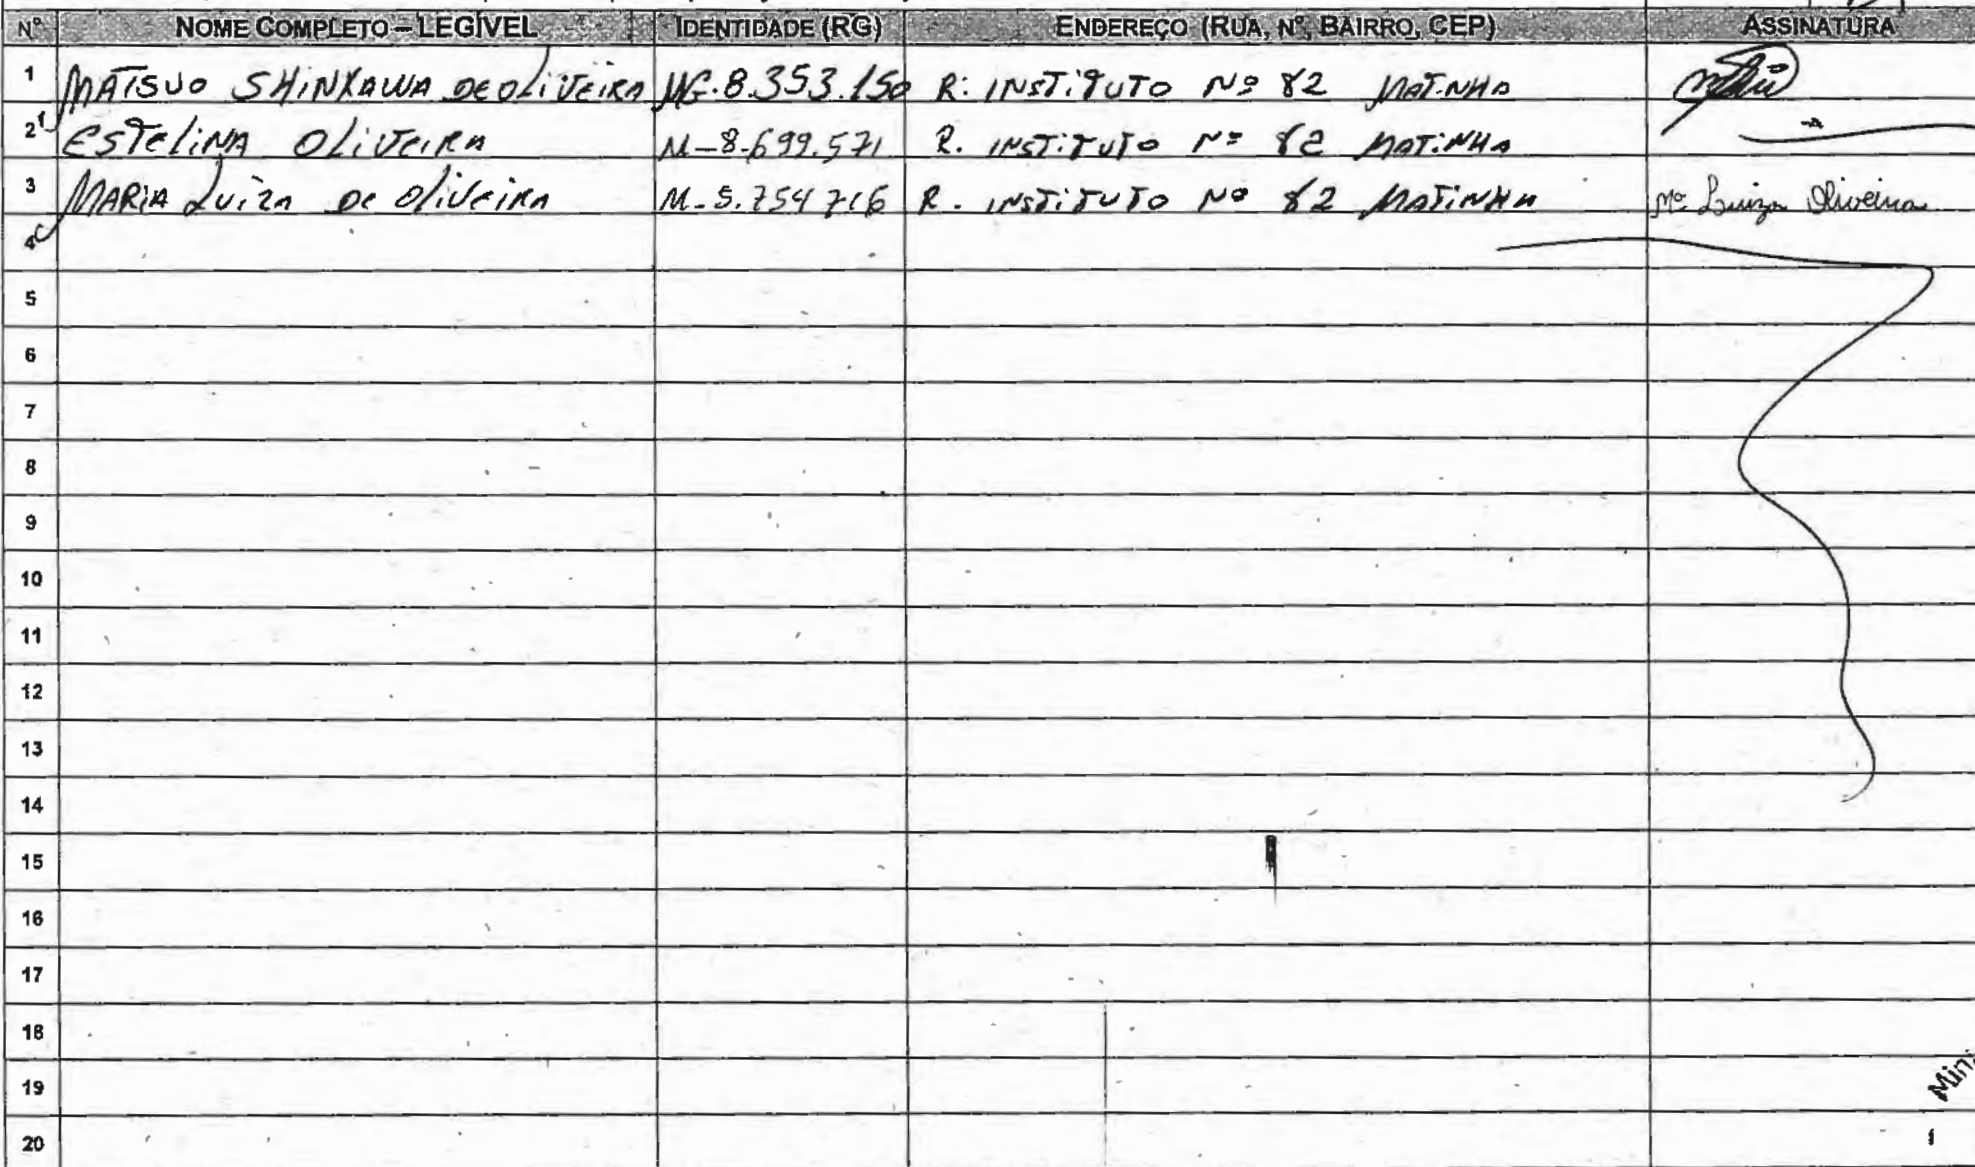 Nº NOME COMPLETO – LEGÍVEL IDENTIDADE (RG) ENDEREÇO (RUA, Nº, BAIRRO, CEP) ASSINATURA
1 MATSUO SHINKAWA DE OLIVEIRA MG-8.353.150 R: INSTITUTO Nº 82 MATINHA
2 ESTELINA OLIVEIRA M-8.699.571 R. INSTITUTO Nº 82 MATINHA
3 MARIA LUIZA DE OLIVEIRA M-5.754 716 R. INSTITUTO Nº 82 MATINHA Mª Luiza Oliveira
4
5
6
7
8
9
10
11
12
13
14
15
16
17
18
19
20